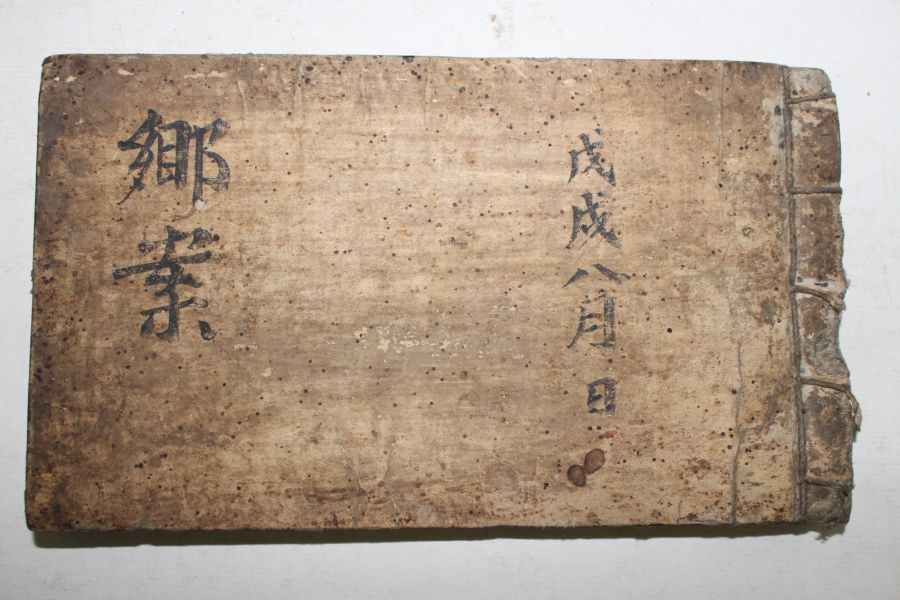 戊戌八月 日
鄕案